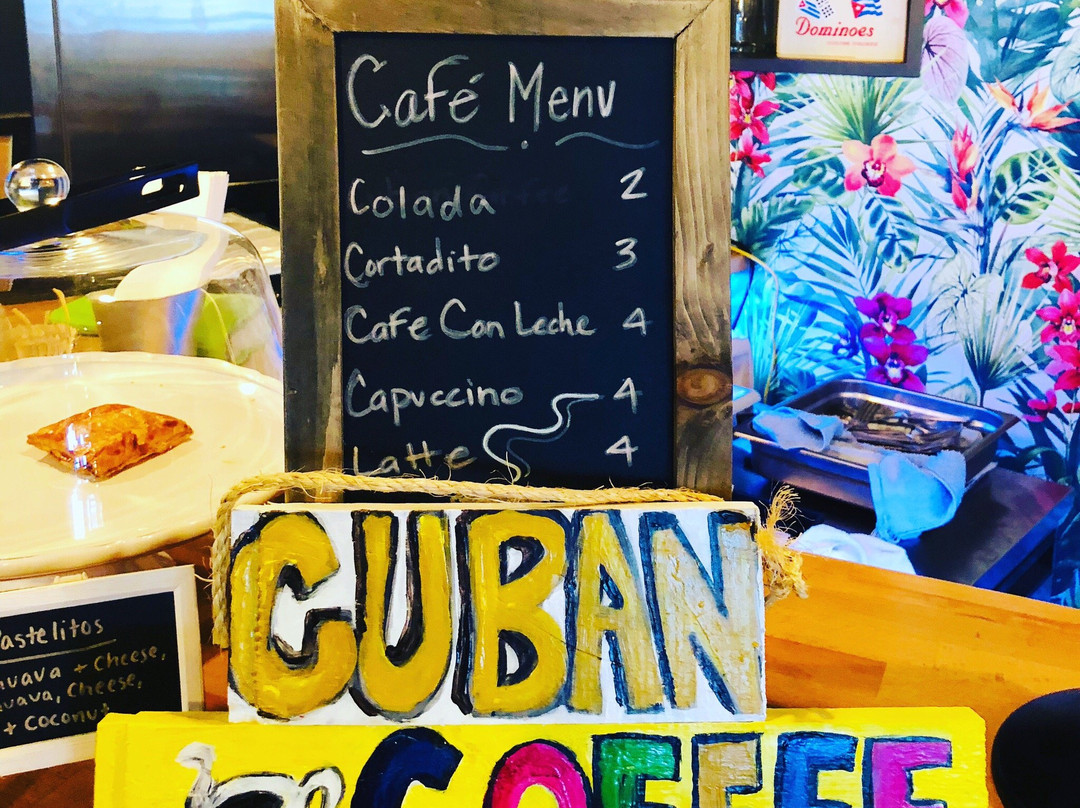 Dominoes
Café Menu
Colada 2
Cortadito 3
Cafe Con Leche 4
Capuccino 4
Latte 4
CUBAN
COFFEE
astelitos
uava + Cheese,
uava, Cheese,
+ Coconut